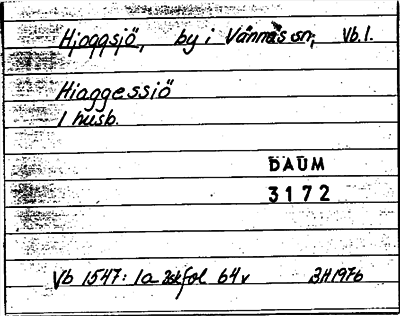 Hjoggsjö, by i Vännäs sn, Vb. l.
Hiaggessiö
1 husb.
DAUM
3172
Vb 1547: 1a fol 64v BH 1976